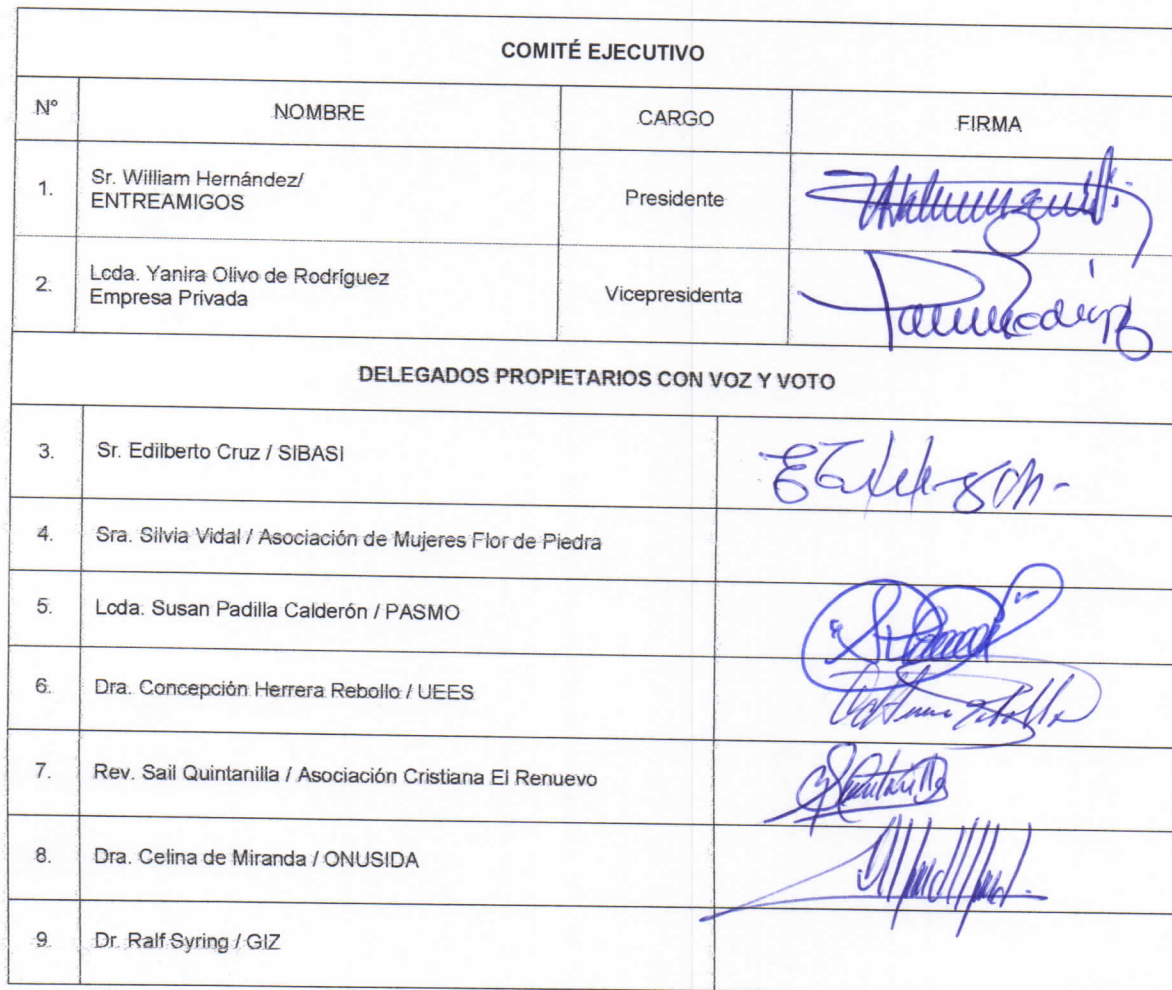 COMITÉ EJECUTIVO
N° NOMBRE CARGO FIRMA
1. Sr. William Hernández/
ENTREAMIGOS Presidente
2. Lcda. Yanira Olivo de Rodríguez
Empresa Privada Vicepresidenta
DELEGADOS PROPIETARIOS CON VOZ Y VOTO
3. Sr. Edilberto Cruz / SIBASI
4. Sra. Silvia Vidal / Asociación de Mujeres Flor de Piedra
5. Lcda. Susan Padilla Calderón / PASMO
6. Dra. Concepción Herrera Rebollo / UEES
7. Rev. Sail Quintanilla / Asociación Cristiana El Renuevo
8. Dra. Celina de Miranda / ONUSIDA
9. Dr. Ralf Syring / GIZ